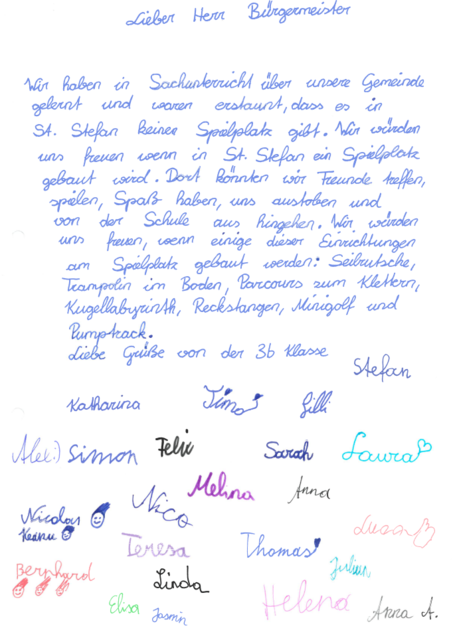 Lieber Herr Bürgermeister
Wir haben in Sachunterricht über unsere Gemeinde
gelernt und waren erstaunt, dass es in
St. Stefan keinen Spielplatz gibt. Wir würden
uns freuen wenn in St. Stefan ein Spielplatz
gebaut wird. Dort könnten wir Freunde treffen,
spielen, Spaß haben, uns austoben und
von der Schule aus hingehen. Wir würden
uns freuen, wenn einige dieser Einrichtungen
am Spielplatz gebaut werden: Seilrutsche,
Trampolin im Boden, Parcours zum Klettern,
Kugellabyrinth, Reckstangen, Minigolf und
Pumptrack.
Liebe Grüße von der 3b Klasse
Stefan
Katharina Timo Lilli
Alex:) Simon Felix Sarah Laura
Melina Anna
Nicolas Nico
Keanu
Luisa
Teresa Thomas
Bernhard Linda Julian
Elisa Jasmin Helena Anna A.